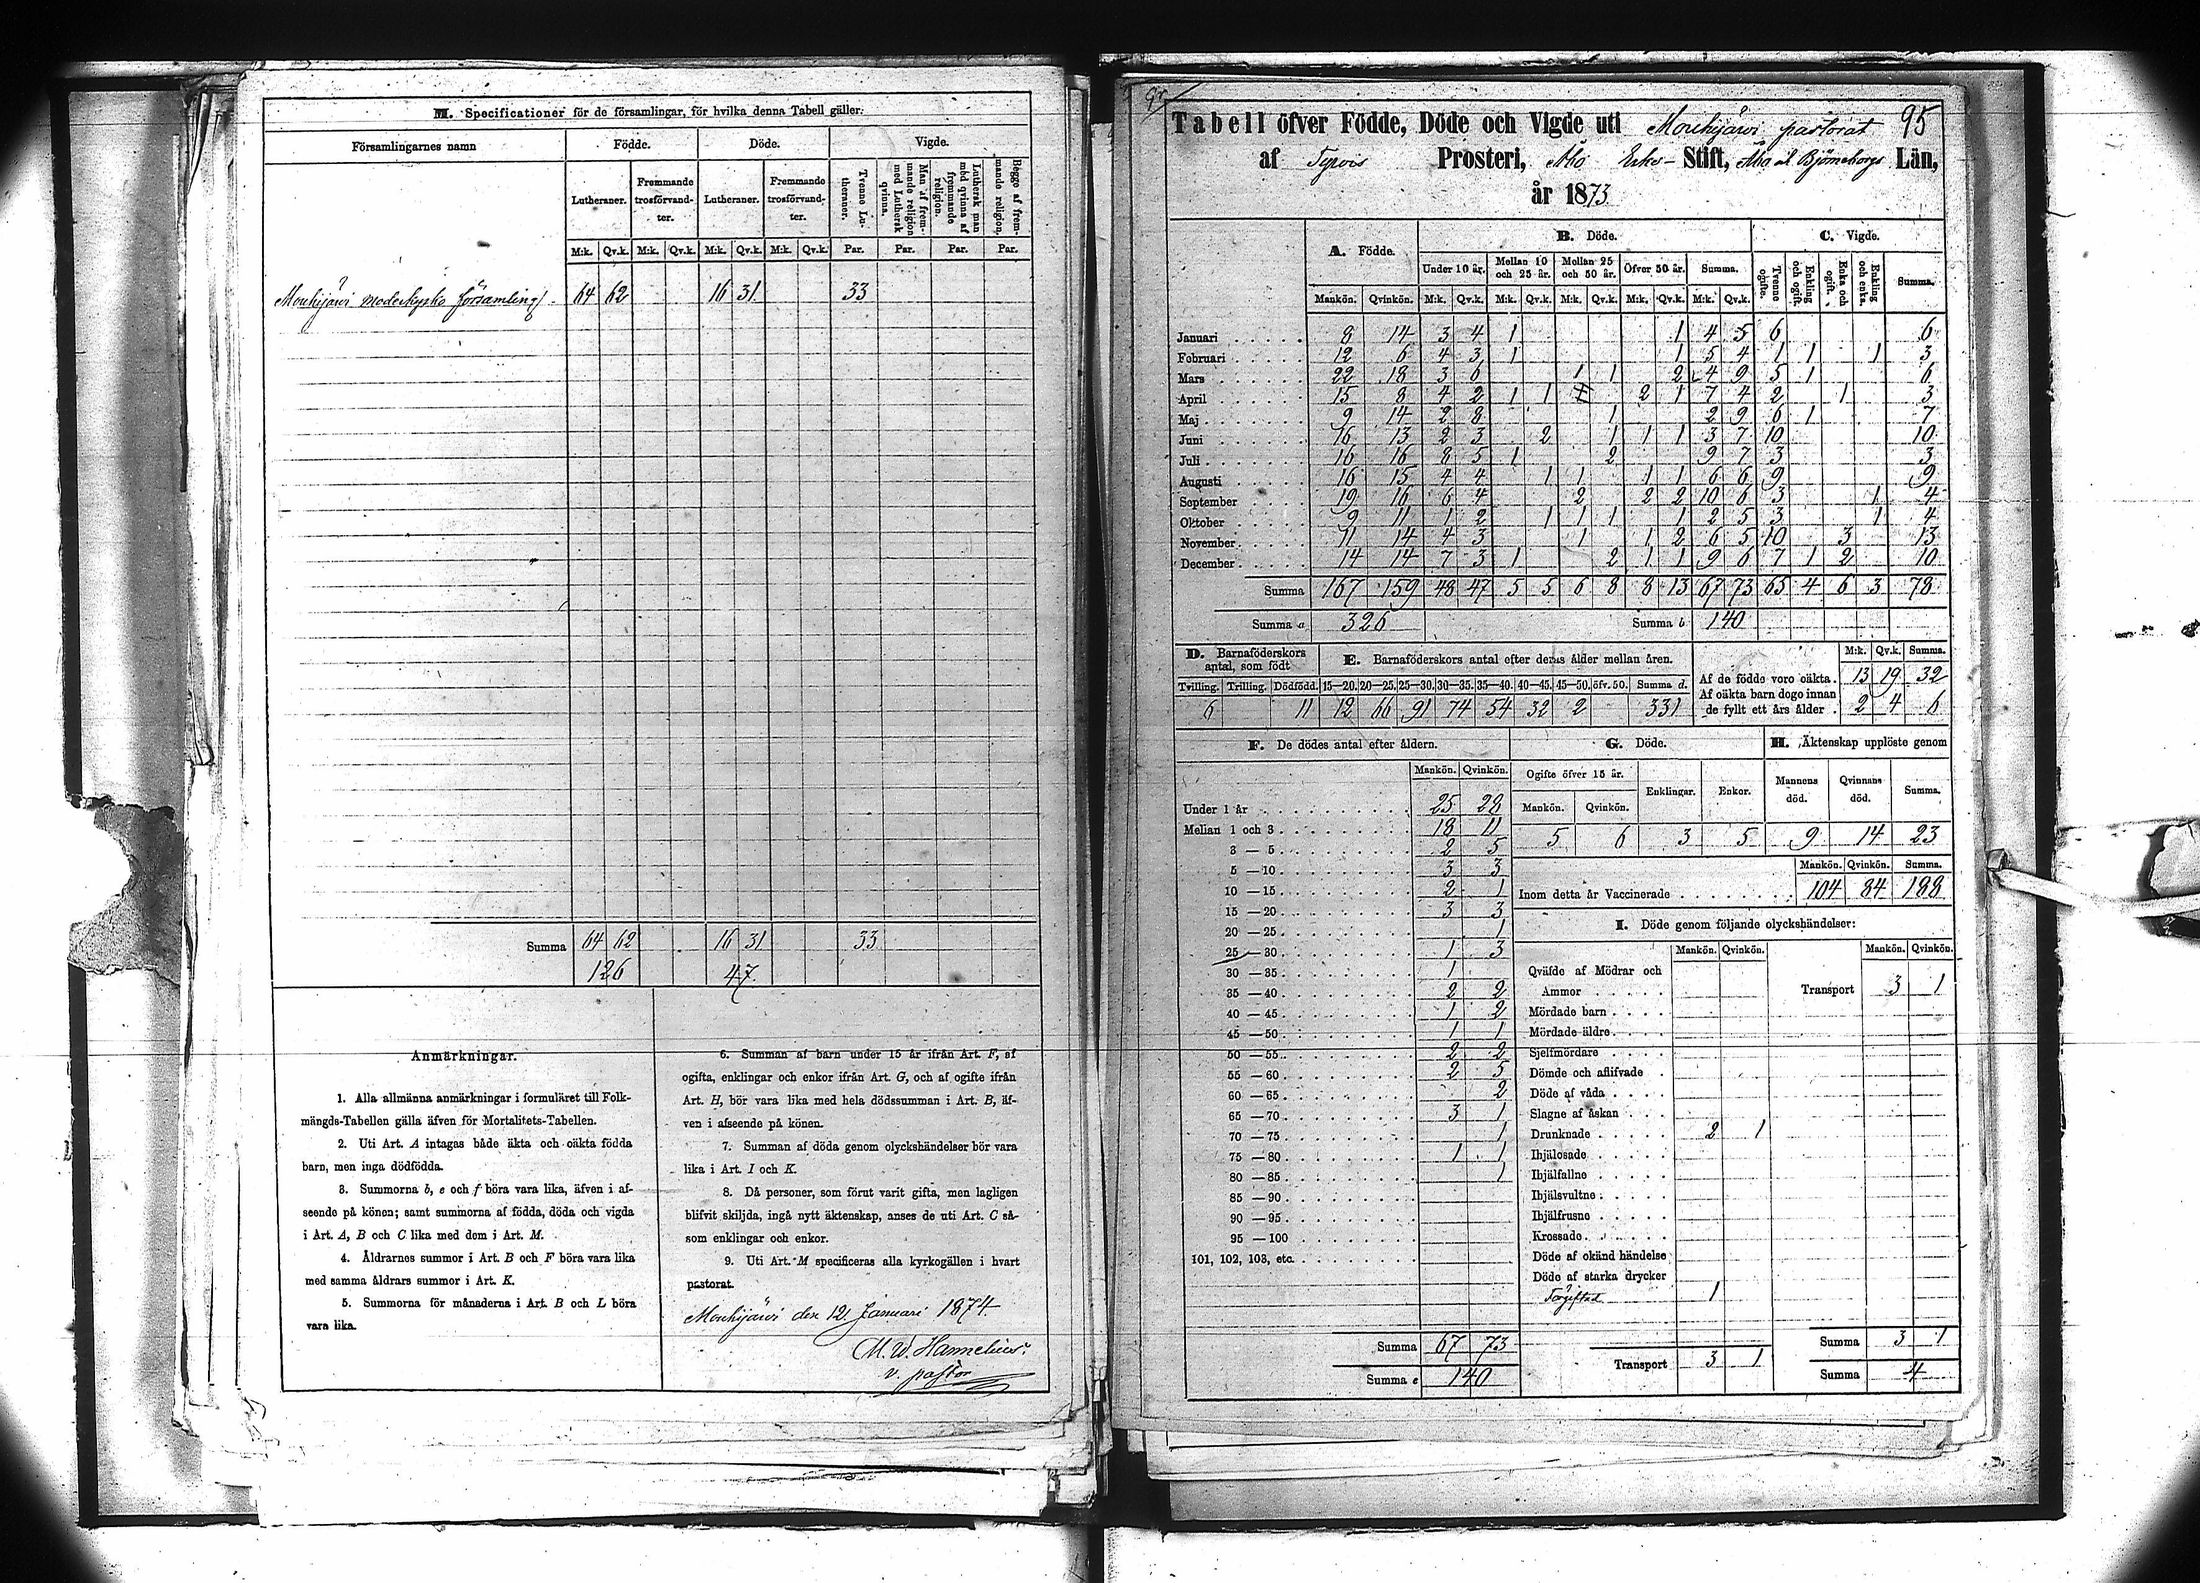 M. Specificationer för de församlingar, för hvilka denna Tabell gäller:
Församlingarnes namn Födde. Döde. Vigde.
Lutheraner. Fremmande trosförvandter. Lutheraner. Fremmande trosförvandter. Tvenne Lutheraner. Man af fremmande religion med Luthersk qvinna. Luthersk man med qvinna af fremmande religion. Begge af fremmande religion.
M:k. Qv.k. M:k. Qv.k. M:k. Qv.k. M:k. Qv.k. Par. Par. Par. Par.
Mouhijärvi moderkyrko församling 64 62 16 31 33
Summa 64 62 16 31 33
126 47
Anmärkningar.
1. Alla allmänna anmärkningar i formuläret till Folk-
mängds-Tabellen gälla äfven för Mortalitets-Tabellen.
2. Uti Art. A intagas både äkta och oäkta födda
barn, men inga dödfödda.
3. Summorna b, e och f böra vara lika, äfven i af-
seende på könen; samt summorna af födda, döda och vigda
i Art. A, B och C lika med dem i Art. M.
4. Åldrarnes summor i Art. B och F böra vara lika
med samma åldrars summor i Art. K.
5. Summorna för månaderna i Art. B och L böra
vara lika.
6. Summan af barn under 15 år ifrån Art. F, af
ogifta, enklingar och enkor ifrån Art. G, och af ogifte ifrån
Art. H, bör vara lika med hela dödssumman i Art. B, äf-
ven i afseende på könen.
7. Summan af döda genom olyckshändelser bör vara
lika i Art. I och K.
8. Då personer, som förut varit gifta, men lagligen
blifvit skiljda, ingå nytt äktenskap, anses de uti Art. C så-
som enklingar och enkor.
9. Uti Art. M specificeras alla kyrkogällen i hvart
pastorat.
Mouhijärvi den 12 Januari 1874.
M. W. Hannelius.
v. pastor
95
Tabell öfver Födde, Döde och Vigde uti Mouhijärvi pastorat
af Tyrvis Prosteri, Åbo Erke-Stift, Åbo och Björneborgs Län,
år 1873
A. Födde. B. Döde. C. Vigde.
Under 10 år. Mellan 10 och 25 år. Mellan 25 och 50 år. Öfver 50 år. Summa. Tvenne ogifte. Enkling och ogift. Enka och ogift. Enkling och enka. Summa.
Mankön. Qvinkön. M:k. Qv.k. M:k. Qv.k. M:k. Qv.k. M:k. Qv.k. M:k. Qv.k.
Januari 8 14 3 4 1 1 4 5 6 6
Februari 12 6 4 3 1 1 5 4 1 1 1 3
Mars 22 18 3 6 1 1 2 4 9 5 1 6
April 15 8 4 2 1 1 2 1 7 4 2 1 3
Maj 9 14 2 8 1 2 9 6 1 7
Juni 16 13 2 3 2 1 1 1 3 7 10 10
Juli 16 16 8 5 1 2 9 7 3 3
Augusti 16 15 4 4 1 1 1 1 6 6 9 9
September 19 16 6 4 2 2 2 10 6 3 1 4
Oktober 9 11 1 2 1 1 1 1 2 5 3 1 4
November 11 14 4 3 1 1 2 6 5 10 3 13
December 14 14 7 3 1 2 1 1 9 6 7 1 2 10
Summa 167 159 48 47 5 5 6 8 8 13 67 73 65 4 6 3 78
Summa a 326 Summa b 140
D. Barnaföderskors antal, som födt
Tvilling. Trilling. Dödfödd.
6 11
E. Barnaföderskors antal efter deras ålder mellan åren.
15—20. 20—25. 25—30. 30—35. 35—40. 40—45. 45—50. öfv. 50. Summa d.
12 66 91 74 54 32 2 331
M:k. Qv.k. Summa.
Af de födde voro oäkta. 13 19 32
Af oäkta barn dogo innan
de fyllt ett års ålder. 2 4 6
F. De dödes antal efter åldern.
Mankön. Qvinkön.
Under 1 år 25 28
Mellan 1 och 3 18 11
3 — 5 2 5
5 —10 3 3
10 —15 2 1
15 —20 3 3
20 —25 1
25 —30 1 3
30 —35 1
35 —40 2 2
40 —45 1 2
45 —50 1 1
50 —55 2 2
55 —60 2 5
60 —65 2
65 —70 3 1
70 —75 1
75 —80 1 1
80 —85 1
85 —90
90 —95
95 —100
101, 102, 103, etc.
Summa 67 73
Summa e 140
G. Döde.
Ogifte öfver 15 år. Enklingar. Enkor.
Mankön. Qvinkön.
5 6 3 5
H. Äktenskap upplöste genom
Mannens död. Qvinnans död. Summa.
9 14 23
Mankön. Qvinkön. Summa.
Inom detta år Vaccinerade 104 84 188
I. Döde genom följande olyckshändelser:
Mankön. Qvinkön. Mankön. Qvinkön.
Qväfde af Mödrar och
Ammor
Mördade barn
Mördade äldre
Sjelfmördare
Dömde och aflifvade
Döde af våda
Slagne af åskan
Drunknade 2 1
Ihjälosade
Ihjälfallne
Ihjälsvultne
Ihjälfrusne
Krossade
Döde af okänd händelse
Döde af starka drycker
Förgiftad 1
Transport 3 1
Transport 3 1
Summa 3 1
Summa 4